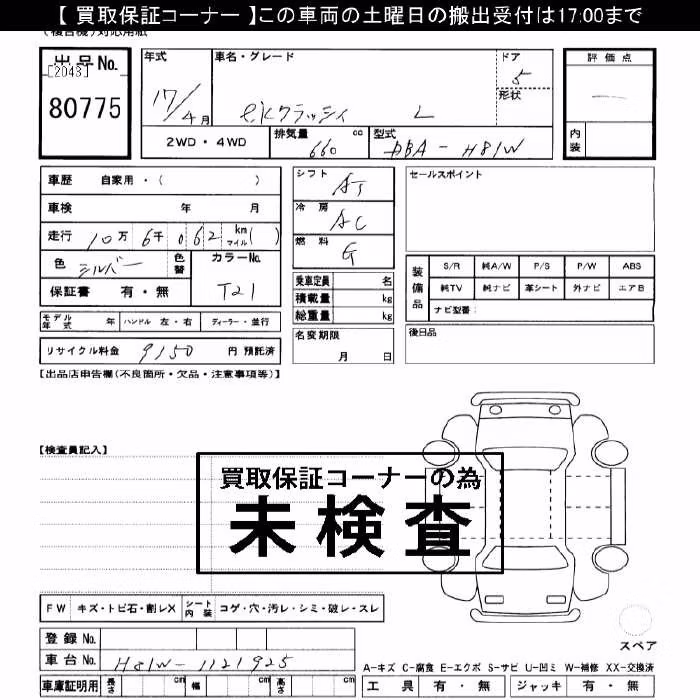 【 買取保証コーナー 】この車両の土曜日の搬出受付は17:00まで
(複合機)対応用紙
出品No.
[2043]
80775
年式
17/4月
車名・グレード
ekクラッシィ L
ドア
5
形状
評価点
内装
2WD・4WD
排気量 cc
660
型式
DBA-H81W
車歴 自家用・( )
車検 年 月
走行 10万 6千 062 km マイル( )
色 シルバー
色替
カラーNo.
T21
保証書 有・無
モデル年式 年 ハンドル 左・右 ディーラー・並行
リサイクル料金 9150 円 預託済
シフト AT
冷房 AC
燃料 G
乗車定員 名
積載量 kg
総重量 kg
名変期限
月 日
セールスポイント
装備品
S/R 純A/W P/S P/W ABS
純TV 純ナビ 革シート 外ナビ エアB
ナビ型番:
後日品
【出品店申告欄(不良箇所・欠品・注意事項等)】
【検査員記入】
買取保証コーナーの為
未検査
FW キズ・トビ石・割レX シート内装 コゲ・穴・汚レ・シミ・破レ・スレ
スペア
登録No.
車台No. H81W-1121925
車庫証明用 長さ cm 幅 cm 高さ cm
A-キズ C-腐食 E-エクボ S-サビ U-凹ミ W-補修 XX-交換済
工具 有・無 ジャッキ 有・無